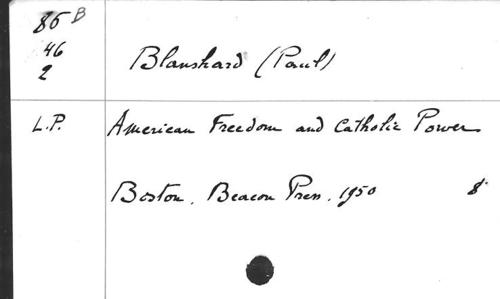 85 B
46
2
Blanshard (Paul)
L.P.
American Freedom and Catholic Power
Boston. Beacon Press. 1950 8°